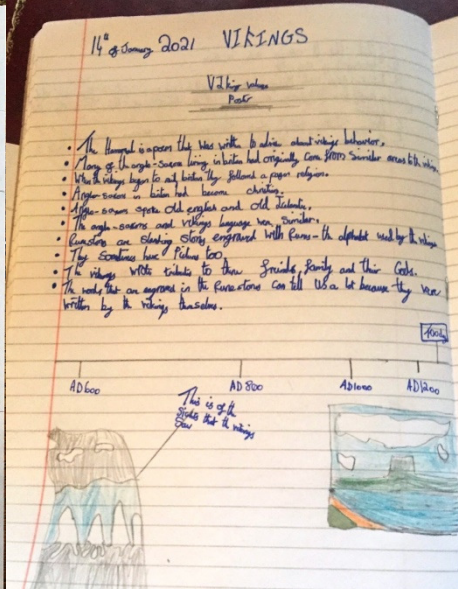 14th of January 2021 VIKINGS
Viking values
Poster
• The Hammal is a poem that was writtn to advise about vikings behavior.
• Many of th anglo-saxons living in britan had originally come from similar areas to the vikings.
• When th vikings began to raid britan they followed a pagen religion.
• Anglo-saxons in britan had become christins.
• Anglo-saxons spoke old englas and old
• The anglo-saxons and vikings language were similar.
• Runestons are Standing Stons engraved with Runes - the alphabet used by the vikings
• They Somtimes have Pictures too.
• The vikings wrote tributes to there freinds, family and their Gods.
• The words that are engraved in the Runestons can tell Us a lot because they were
written by th vikings themselves.
AD600
AD800
AD1000
AD1200
This is of the
that th vikings
Saw